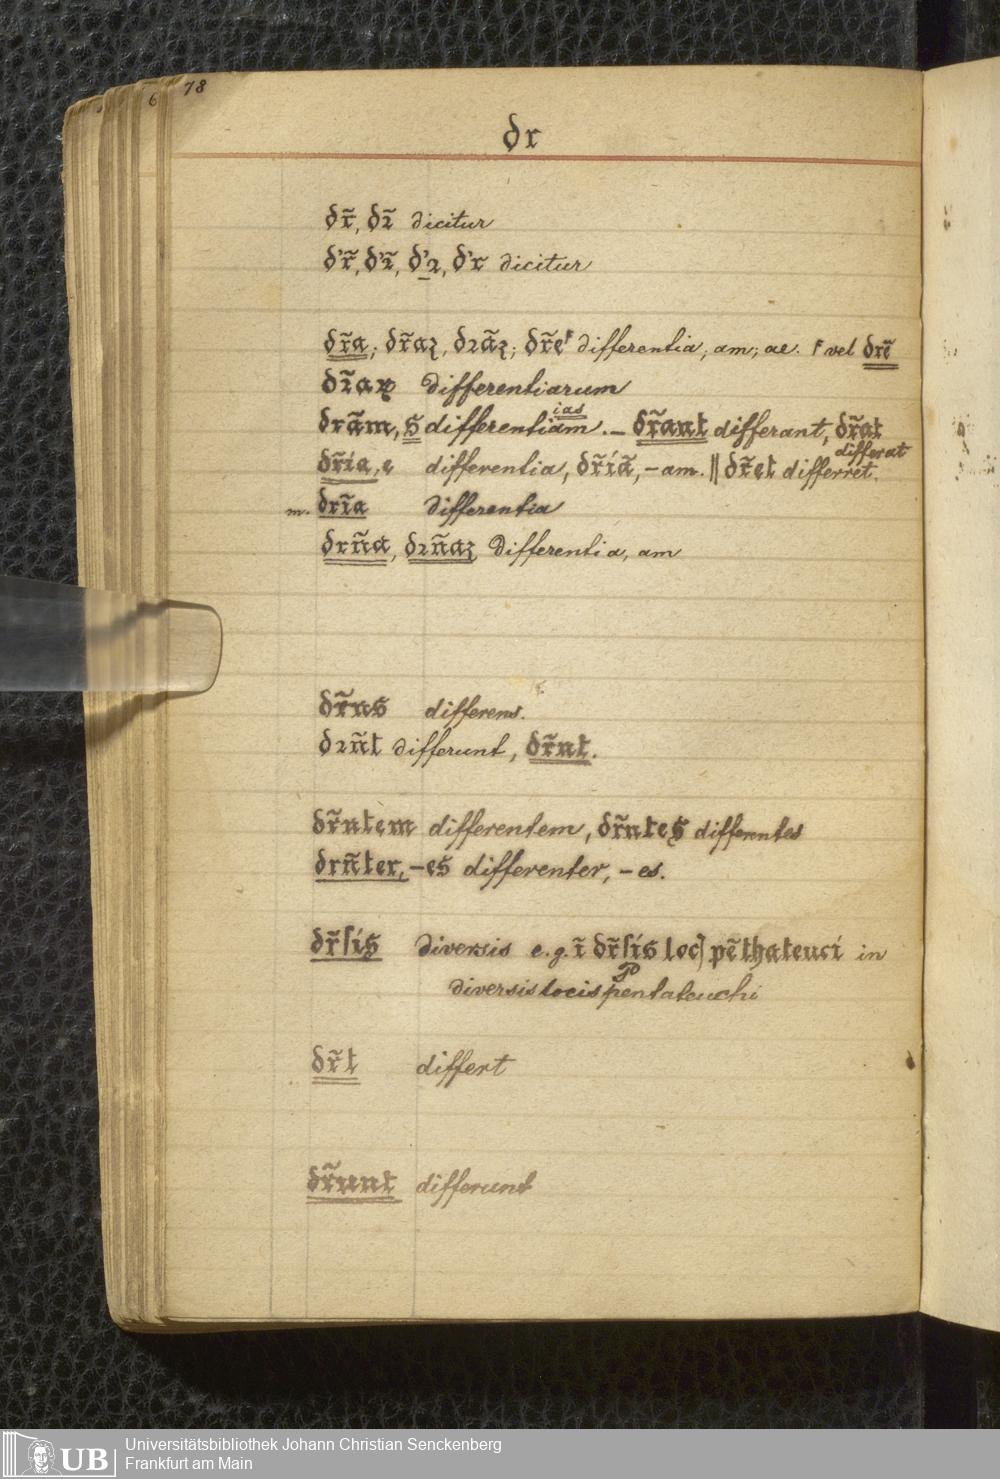 6 78
dr
dr̃, dꝛ̃ dicitur
d'r̃, d'ꝛ̃, d'ꝛ, d'r dicitur
dr̃a; dr̃aʒ, dꝛãʒ; dr̃e⸢ differentia, am, ae. ⸢ vel drẽ
dꝛ̃aꝝ differentiarum
drãm, s differentiam ias. – dr̃ant differant, dr̃at differat
dr̃ia, e differentia, dr̃iã, – am. || dr̃et differret.
m. drĩa differentia
drña, dꝛñaʒ Differentia, am
dr̃ns differens.
dꝛñt differunt, dr̃nt.
dr̃ntem differentem, dr̃ntes differentes
drñter, – es differenter, – es.
dr̃ſis diversis e.g. ĩ dr̃ſis locꝭ pẽthateuci in
diversis locis Pentateuchi
dr̃t differt
dr̃unt differunt
UB
Universitätsbibliothek Johann Christian Senckenberg
Frankfurt am Main